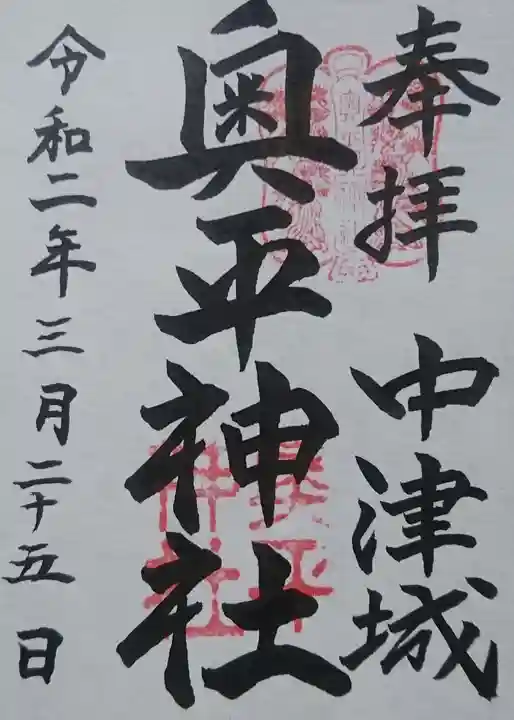 奉拝 中津城
奥平神社
令和二年三月二十五日
奥平
神社